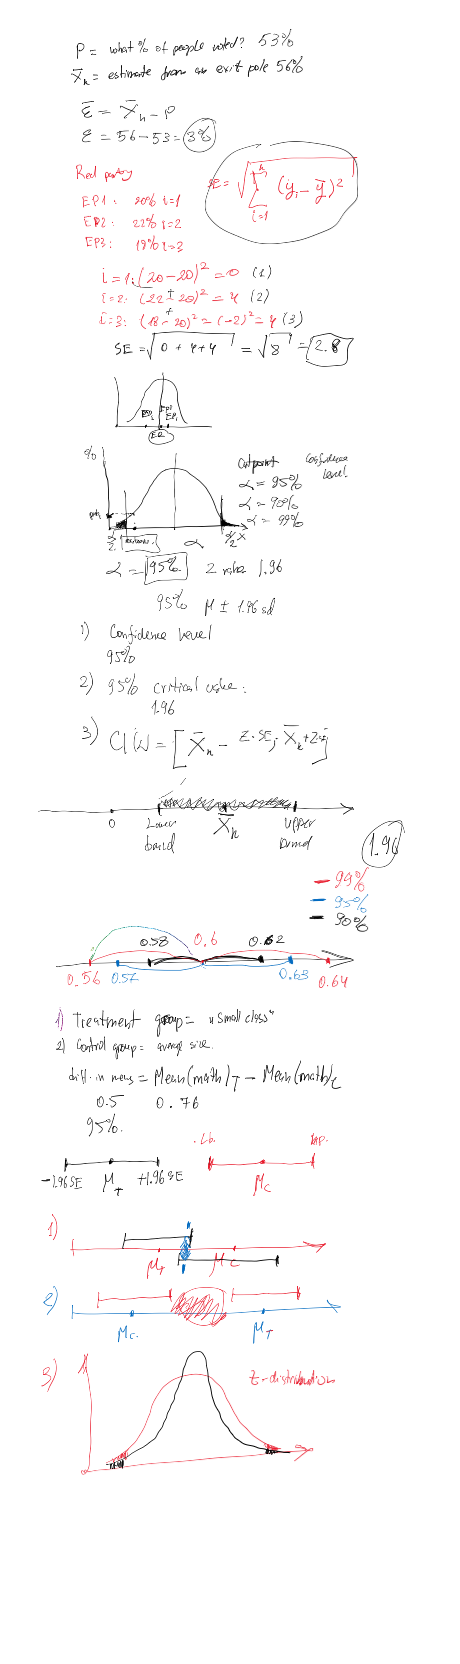 P = what % of people voted? 53%
X̄ₙ = estimate from an exit pole 56%
ε̄ = X̄ₙ - P
ε = 56 - 53 = 3%
Red party
EP1: 20% i=1
EP2: 22% i=2
EP3: 18% i=3
SE = √ Σ (yᵢ - ȳ)²
n
i=1
i=1: (20-20)² = 0 (1)
i=2: (22-20)² = 4 (2)
i=3: (18-20)² = (-2)² = 4 (3)
SE = √0+4+4 = √8 = 2.8
%
Cutpoint
Confidence level
α = 95%
α = 90%
α = 99%
α/2
α
α/2 x
α = 95% Z value 1.96
95% μ ± 1.96 sd
1) Confidence level
95%
2) 95% critical value:
1.96
3) CI(α) = [X̄ₙ - Z·SE; X̄ₙ + Z·SE]
0
Lower band
X̄ₙ
Upper band
1.96
99%
95%
90%
0.58 0.6 0.62
0.56 0.57 0.63 0.64
1) Treatment group = "small class"
2) Control group = average size.
diff. in means = Mean(math)_T - Mean(math)_C
0.5 0.76
95%.
Lb. Up.
-1.96SE μ_T +1.96SE μ_C
1)
μ_T μ_C
2)
μ_C μ_T
3)
Z-distribution